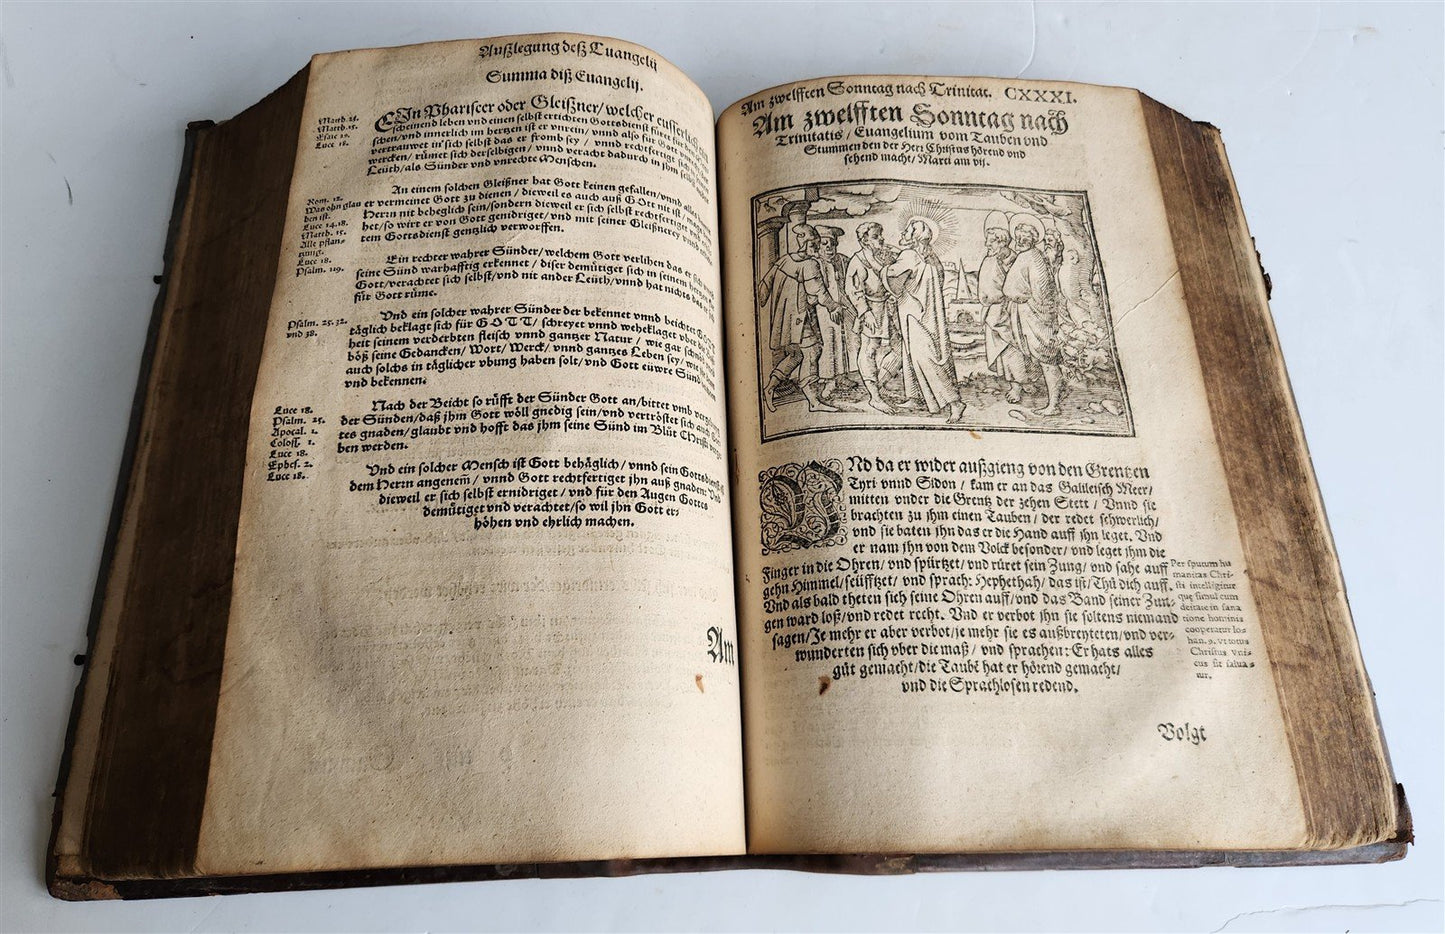 Außlegung deß Euangelij
Summa diß Euangelij.
EIn Phariseer oder Gleißner/ welcher eusserlich ein
scheinend leben vnd einen selbst ertichten Gottsdienst füret für den
schen/ vnd innerlich im hertzen ist er vnrein/ vnnd also für Gott
vertrauwet in sich selbst das er fromb sey / vnnd rechtfertiget sich in
wercken/ rümet sich derselbigen/ vnnd veracht dadurch in jhm selbst
Leuth/ als Sünder vnd vnrechte Menschen.
Matth. 23.
Matth. 15.
Esaie 29.
Luce 18.
An einem solchen Gleißner hat Gott keinen gefallen/ vnnd alles
er vermeinet Gott zu dienen / dieweil es auch auß GOtt nit ist / mag
Herrn nit beheglich sein/ sondern dieweil er sich selbst rechtfertiget
het/ so wirt er von Gott genidriget/ vnd mit seiner Gleißnerey vnd
tem Gottsdienst gentzlich verworffen.
Rom. 12.
Was ohn glau
ben ist.
Luce 14. 18.
Matth. 15.
Alle pflan-
tzung.
Luce 18.
Psalm. 119.
Ein rechter wahrer Sünder/ welchem Gott verlihen das er sich
seine Sünd warhafftig erkennet / diser demütiget sich in seinem hertzen
Gott/ verachtet sich selbst/ vnd nit ander Leuth/ vnnd hat nichts das er sich
für Gott rüme.
Vnd ein solcher wahrer Sünder der bekennet vnnd beichtet GOTT
täglich beklagt sich für GOTT/ schreyet vnnd weheklaget vber die
heit seinem verderbten fleisch vnnd gantzer Natur / wie gar schnöd
böß seine Gedancken/ Wort/ Werck/ vnnd gantzes Leben sey/ wie
auch solchs in täglicher vbung haben solt/ vnd Gott euwre Sünd
vnd bekennen.
Psalm. 25. 32.
vnd 38.
Nach der Beicht so rüfft der Sünder Gott an/ bittet vmb verzeihung
der Sünden/ daß jhm Gott wöll gnedig sein/ vnd vertröstet sich auch
tes gnaden/ glaubt vnd hofft das jhm seine Sünd im Blüt Christi
ben werden.
Luce 18.
Psalm. 25.
Apocal. 1.
Coloss. 1.
Luce 18.
Ephes. 2.
Luce 18.
Vnd ein solcher Mensch ist Gott behäglich / vnnd sein Gottsdienst
dem Herrn angenem/ vnnd Gott rechtfertiget jhn auß gnaden: Vnd
dieweil er sich selbst ernidriget / vnd für den Augen Gottes
demütiget vnd verachtet/ so wil jhn Gott er-
höhen vnd ehrlich machen.
Am
Am zwelfften Sonntag nach Trinitat. CXXXI.
Am zwelfften Sonntag nach
Trinitatis / Euangelium vom Tauben vnd
Stummen den der Herr Christus hörend vnd
sehend macht/ Marci am vij.
VNd da er wider außgieng von den Grentzen
Tyri vnnd Sidon / kam er an das Galileisch Meer/
mitten vnder die Grentz der zehen Stett / Vnnd sie
brachten zu jhm einen Tauben / der redet schwerlich/
vnd sie baten jhn das er die Hand auff jhn leget. Vnd
er nam jhn von dem Volck besonder/ vnd leget jhm die
Finger in die Ohren/ vnd spürtzet/ vnd rüret sein Zung/ vnd sahe auff
gehn Himmel/ seüfftzet/ vnd sprach: Hephethah/ das ist/ Thü dich auff.
Vnd als bald theten sich seine Ohren auff/ vnd das Band seiner Zun-
gen ward loß/ vnd redet recht. Vnd er verbot jhn sie soltens niemand
sagen/ Je mehr er aber verbot/ je mehr sie es außbreyteten/ vnd ver-
wunderten sich vber die maß / vnd sprachen: Er hats alles
güt gemacht/ die Taube hat er hörend gemacht/
vnd die Sprachlosen redend.
Per sputum hu
manitas Chri-
sti intelligitur
que simul cum
deitate in sana
tione hominis
cooperatur Io-
han. 9. vt totus
Christus vni-
cus sit salua-
tur.
Volgt